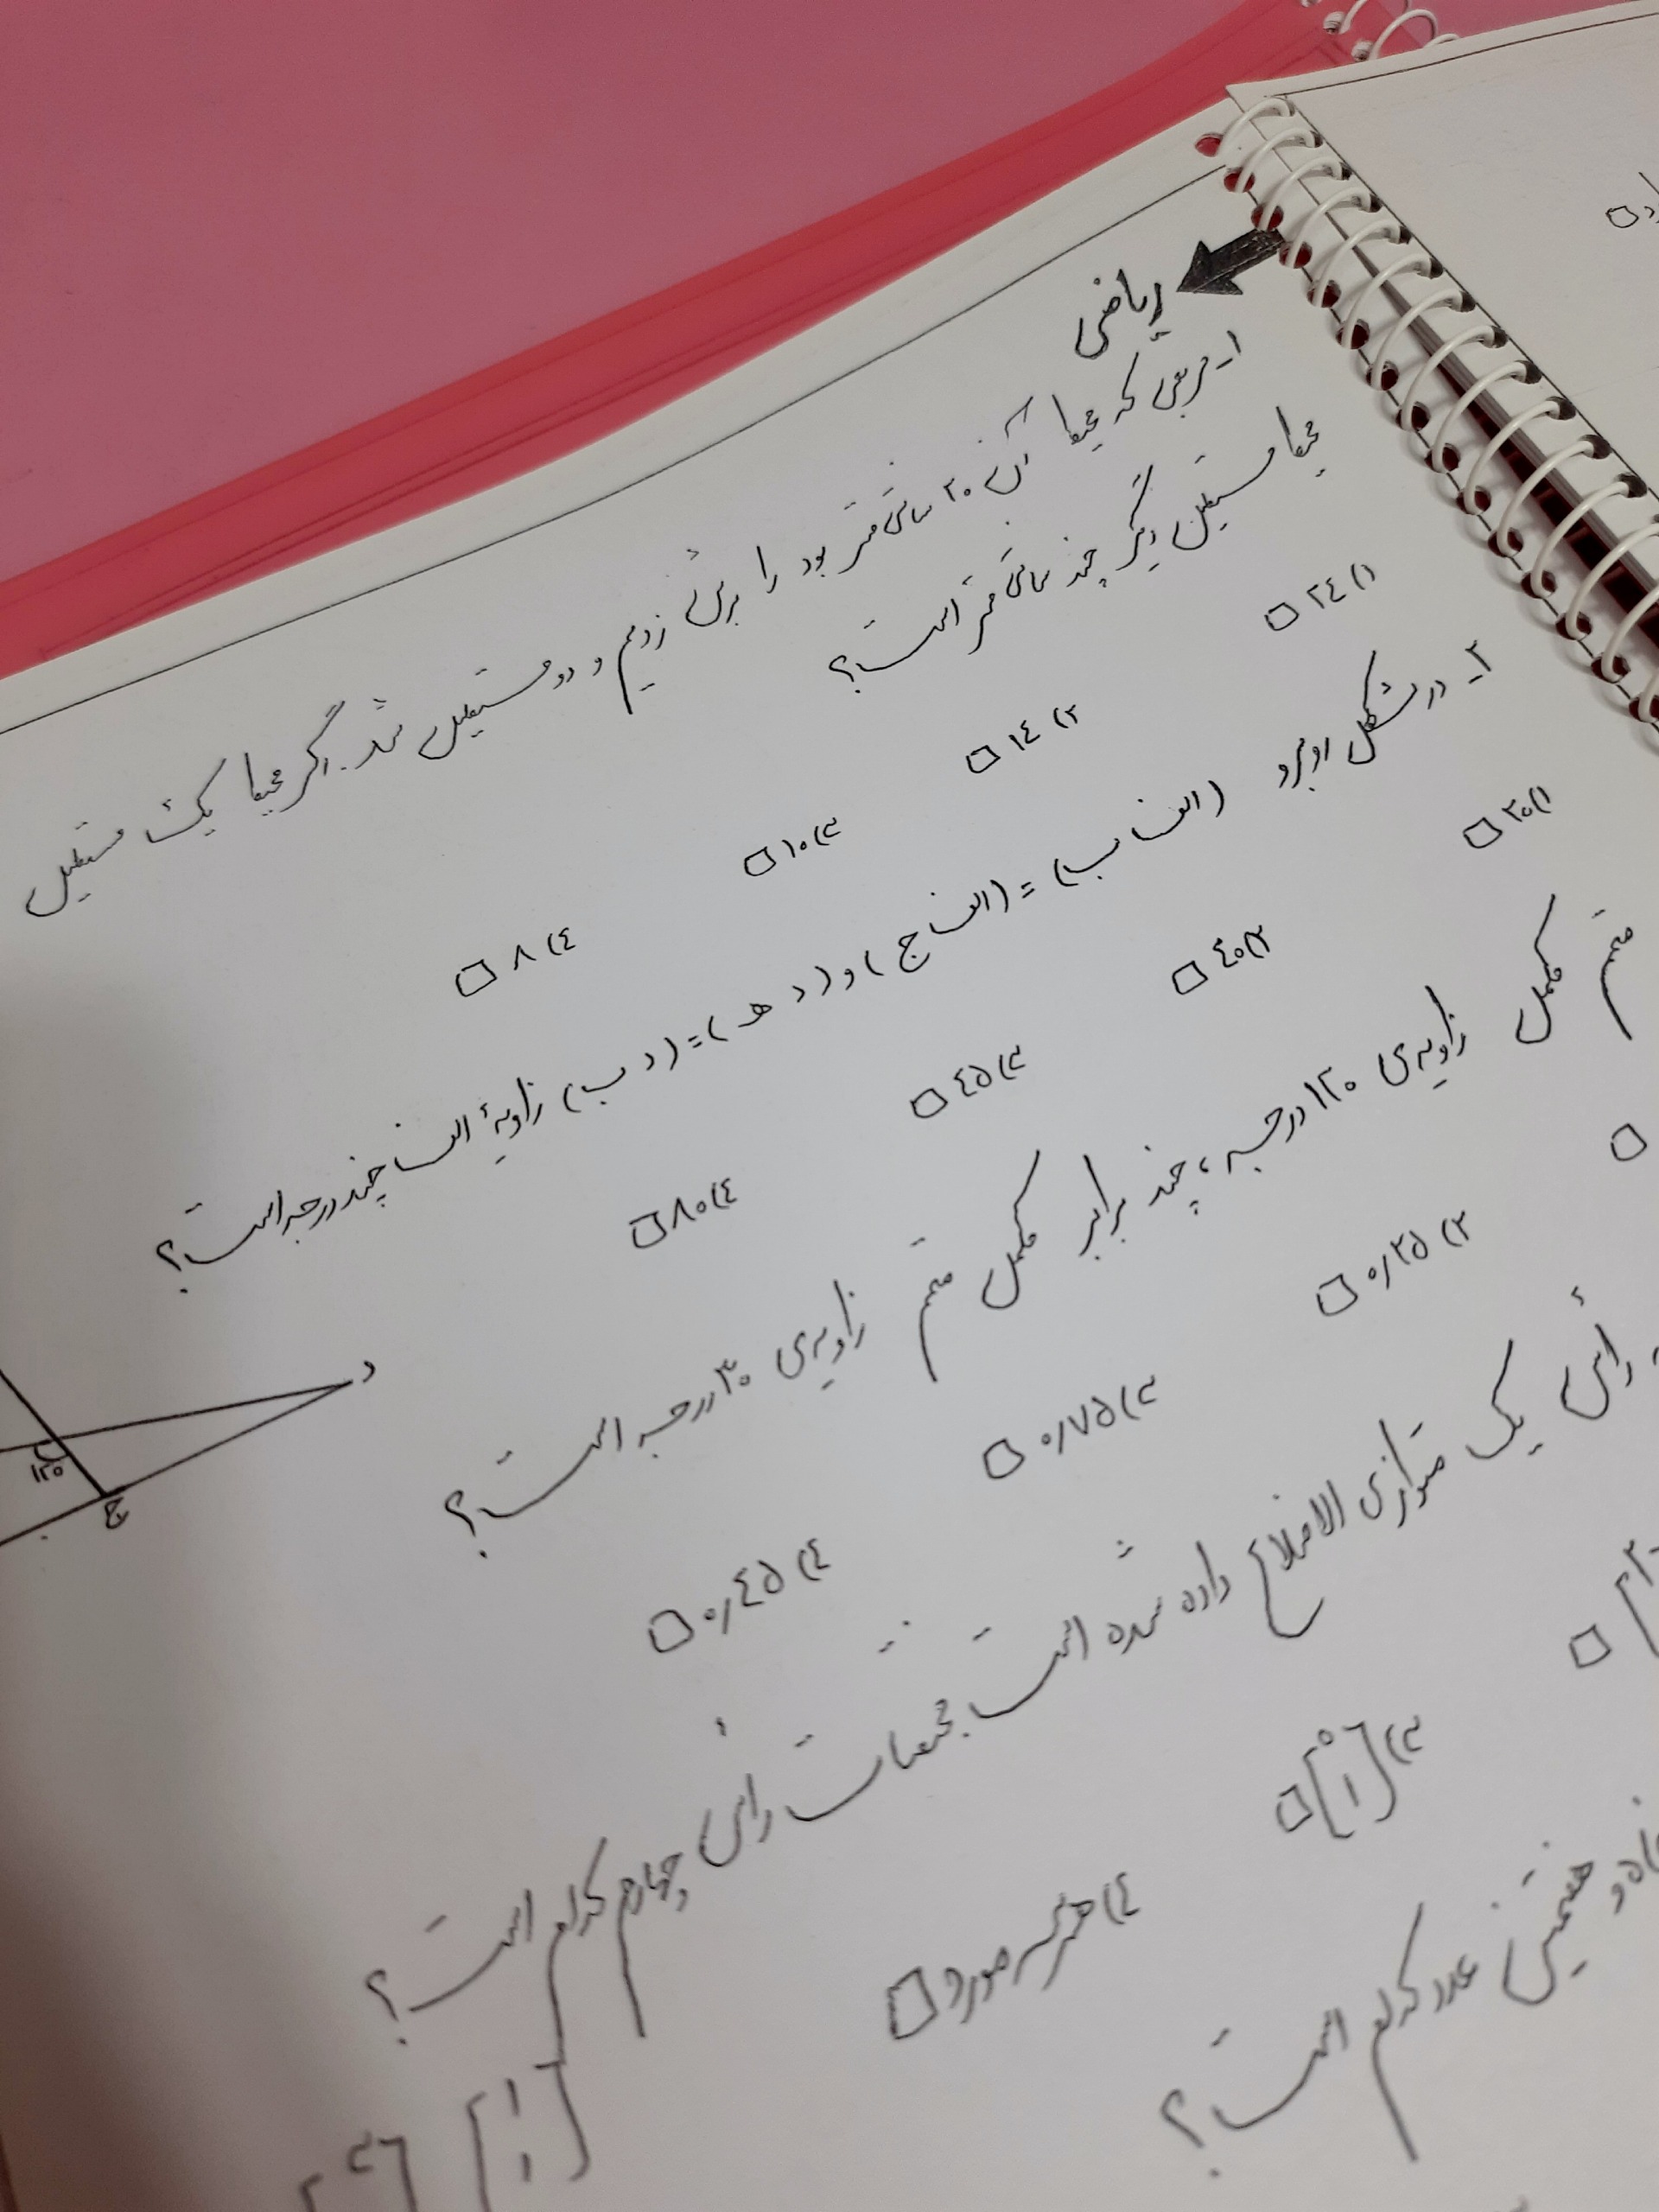 ریاضی
۱- مربعی که محیط آن ۲۰ سانتی متر بود را برش زدیم و دو مستطیل شد. اگر محیط یک مستطیل
محیط مستطیل دیگر چند سانتی متر است؟
۱) ۲٤ □ ۲) ۱٤ □ ۳) ۱۰ □ ٤) ۸ □
۲- در شکل روبرو (الف ب) = (الف ج) و (د هـ) = (د ب) زاویهٔ الف چند درجه است؟
۱) ۲۰ □ ۲) ٤۰ □ ۳) ٤۵ □ ٤) ۸۰ □
متمم مکمل زاویه‌ی ۱۲۰ درجه، چند برابر مکمل متمم زاویه‌ی ۳۰ درجه است؟
□ ۲) ۰/۲۵ □ ۳) ۰/۷۵ □ ٤) ۰/٤۵ □
د
ب
۱۲۰
ج
رأس یک متوازی الاضلاع داده شده است. مختصات رأس چهارم کدام است؟
□ ۳) [۰ ۱] □ ٤) هر سه مورد □
هفتمین عدد کدام است؟
[۱ ۱]